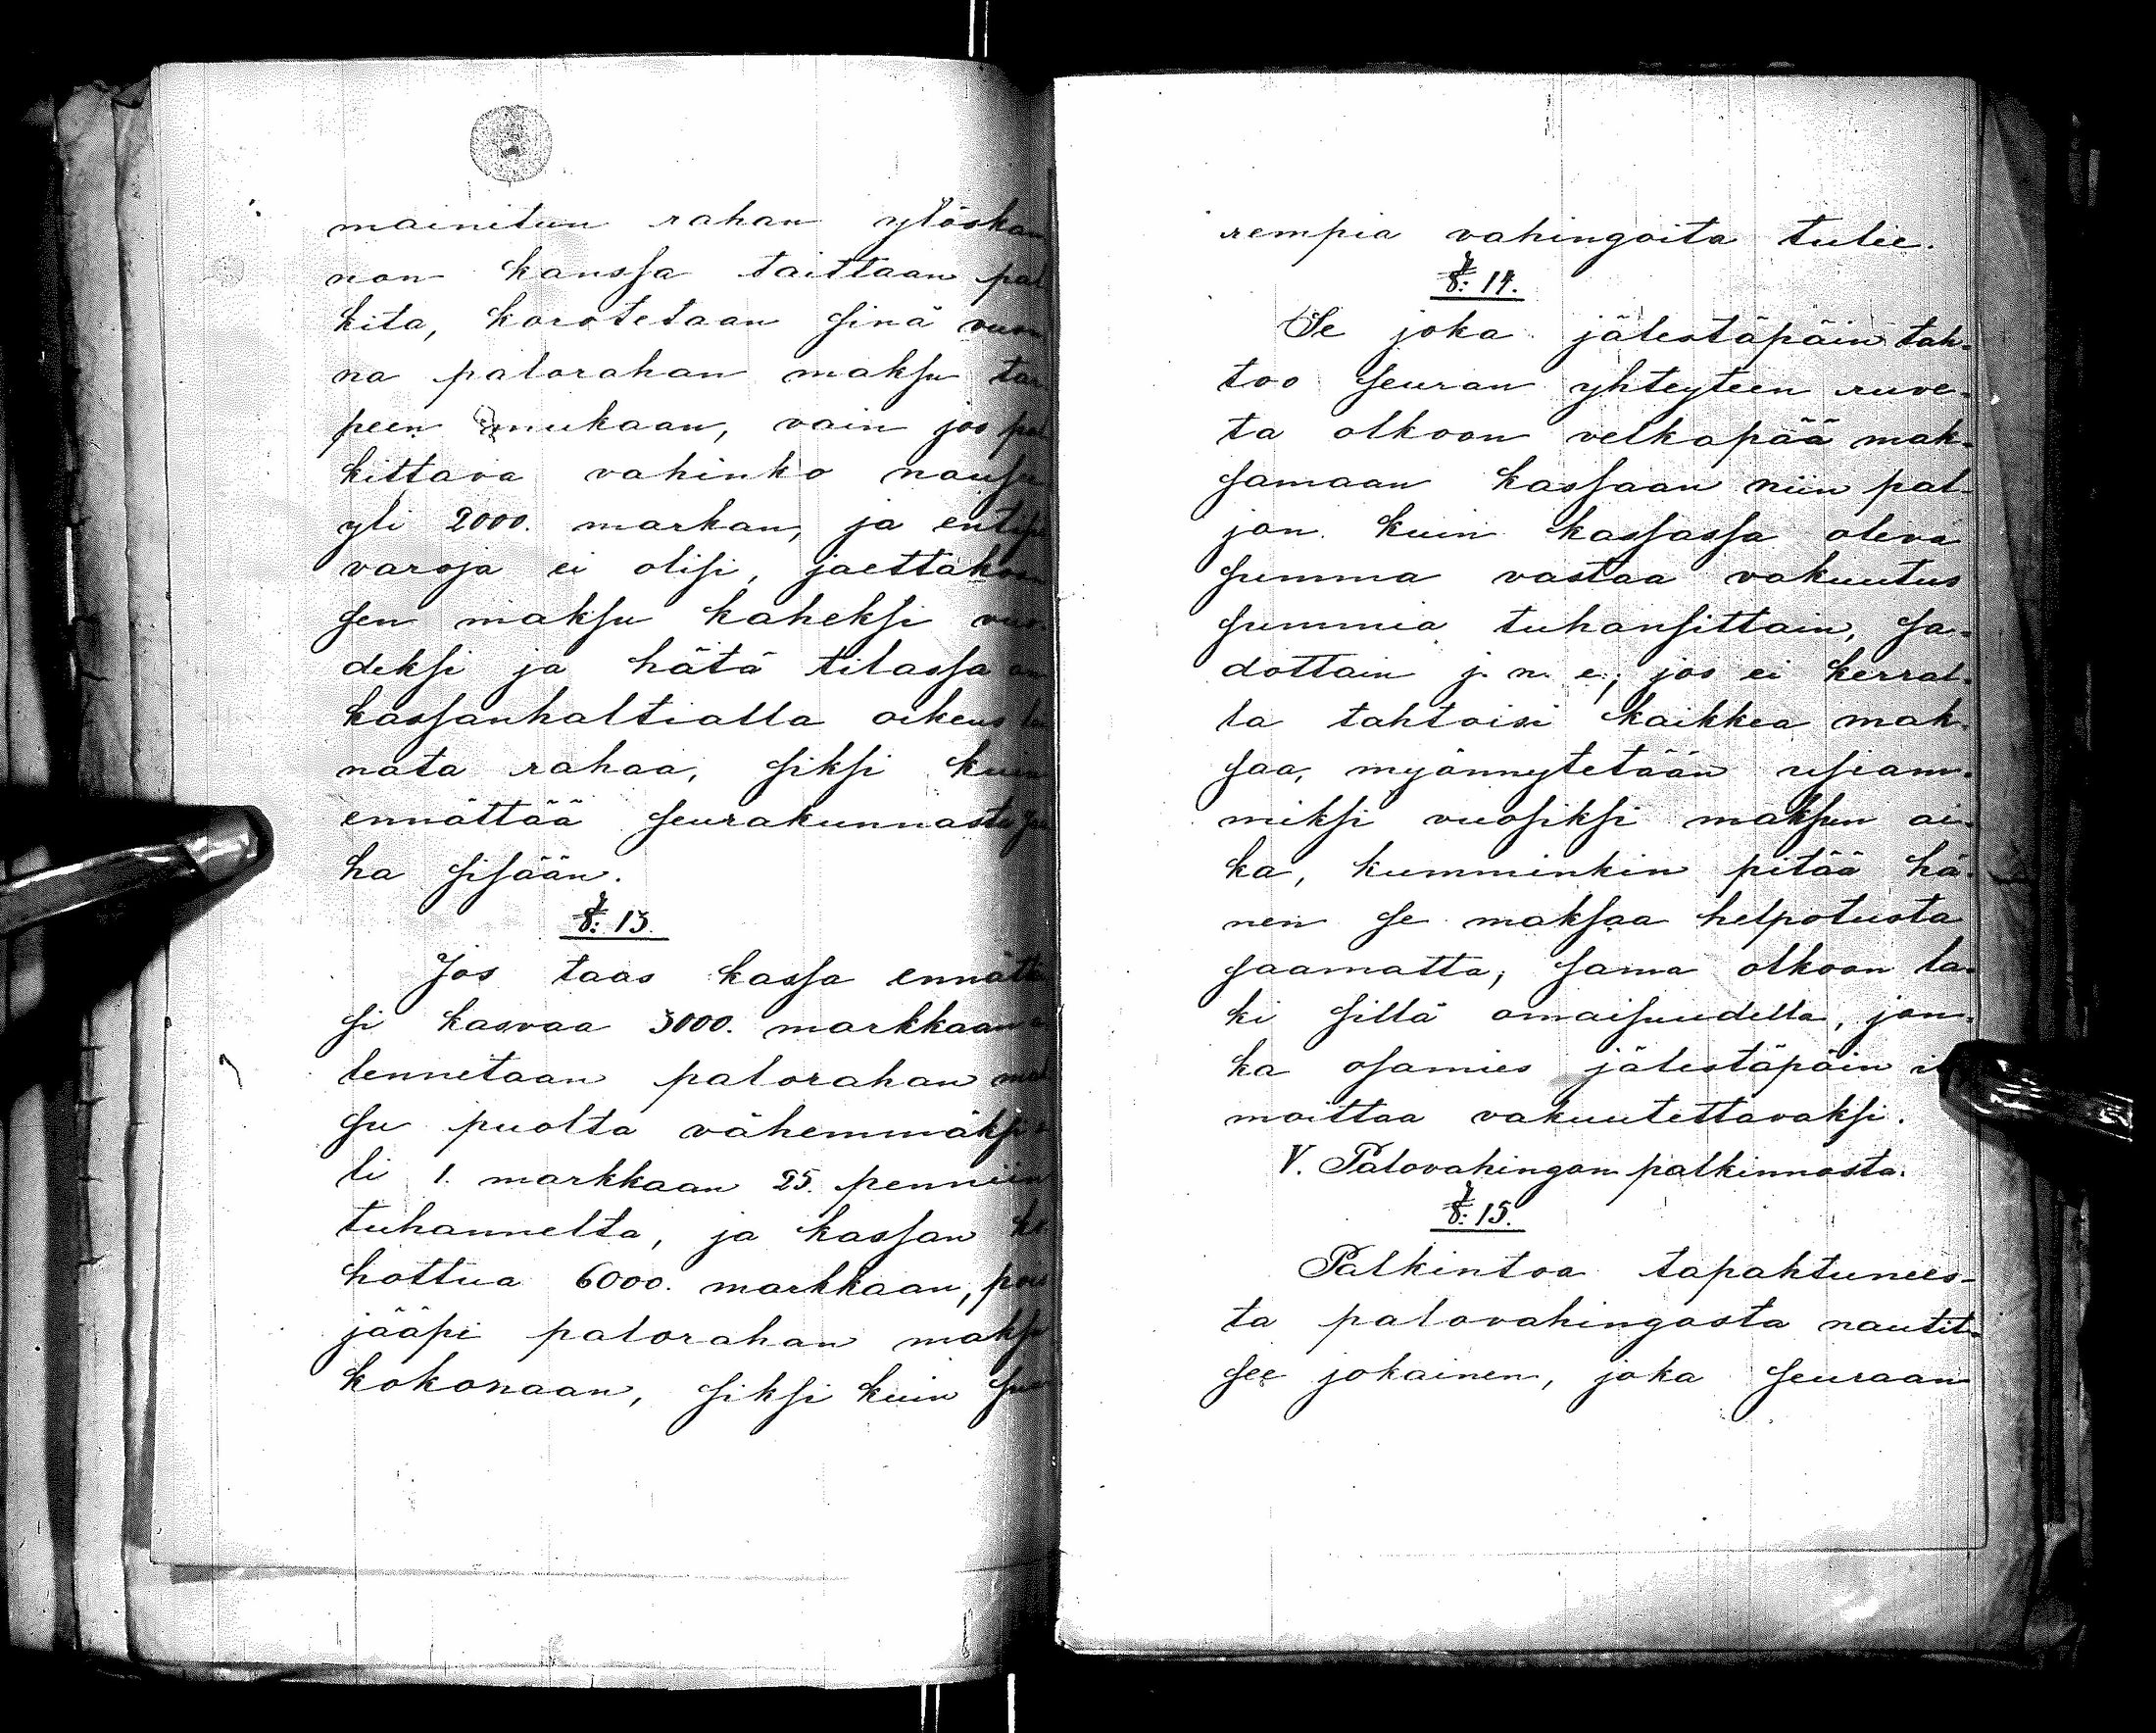 mainitun rahan ylöskan
non kanssa taittaan pal
kita, korotetaan sinä vuon
na palorahan maksu tar
peen mukaan, vain jos pal
kittava vahinko nousee
yli 2000. markan, ja entisiä
varoja ei olisi, jaettakoon
sen maksu kaheksi vuo
deksi ja hätä tilassa on
kassanhaltialla oikeus lai
nata rahaa, siksi kuin
ennättää seurakunnasta sai
ha sisään.
§: 13.
Jos taas kassa ennättä
si kasvaa 3000. markkaan a
lennetaan palorahan mak
su puolta vähemmäksi e
li 1. markkaan 25. penniin
tuhannelta, ja kassan ko
hottua 6000. markkaan, pois
jääpi palorahan maksu
kokonaan, siksi kuin suu
rempia vahingoita tulee.
§: 14.
Se joka jälestäpäin tah-
too seuran yhteyteen ruve-
ta olkoon velkapää mak-
samaan kassaan niin pal-
jon kuin kassassa oleva
summa vastaa vakuutus
summia tuhansittain, sa-
dottain j. n. e., jos ei kerral-
la tahtoisi kaikkea mak-
saa, myönnytetään usiam-
miksi vuosiksi maksun ai-
ka, kumminkin pitää hä-
nen se maksaa helpotusta
saamatta, sama olkoon la-
ki sillä omaisuudella, jon-
ka osamies jälestäpäin il
moittaa vakuutettavaksi.
V. Palovahingon palkinnosta.
§: 15.
Palkintoa tapahtunees-
ta palovahingosta nautit-
see jokainen, joka seuraan